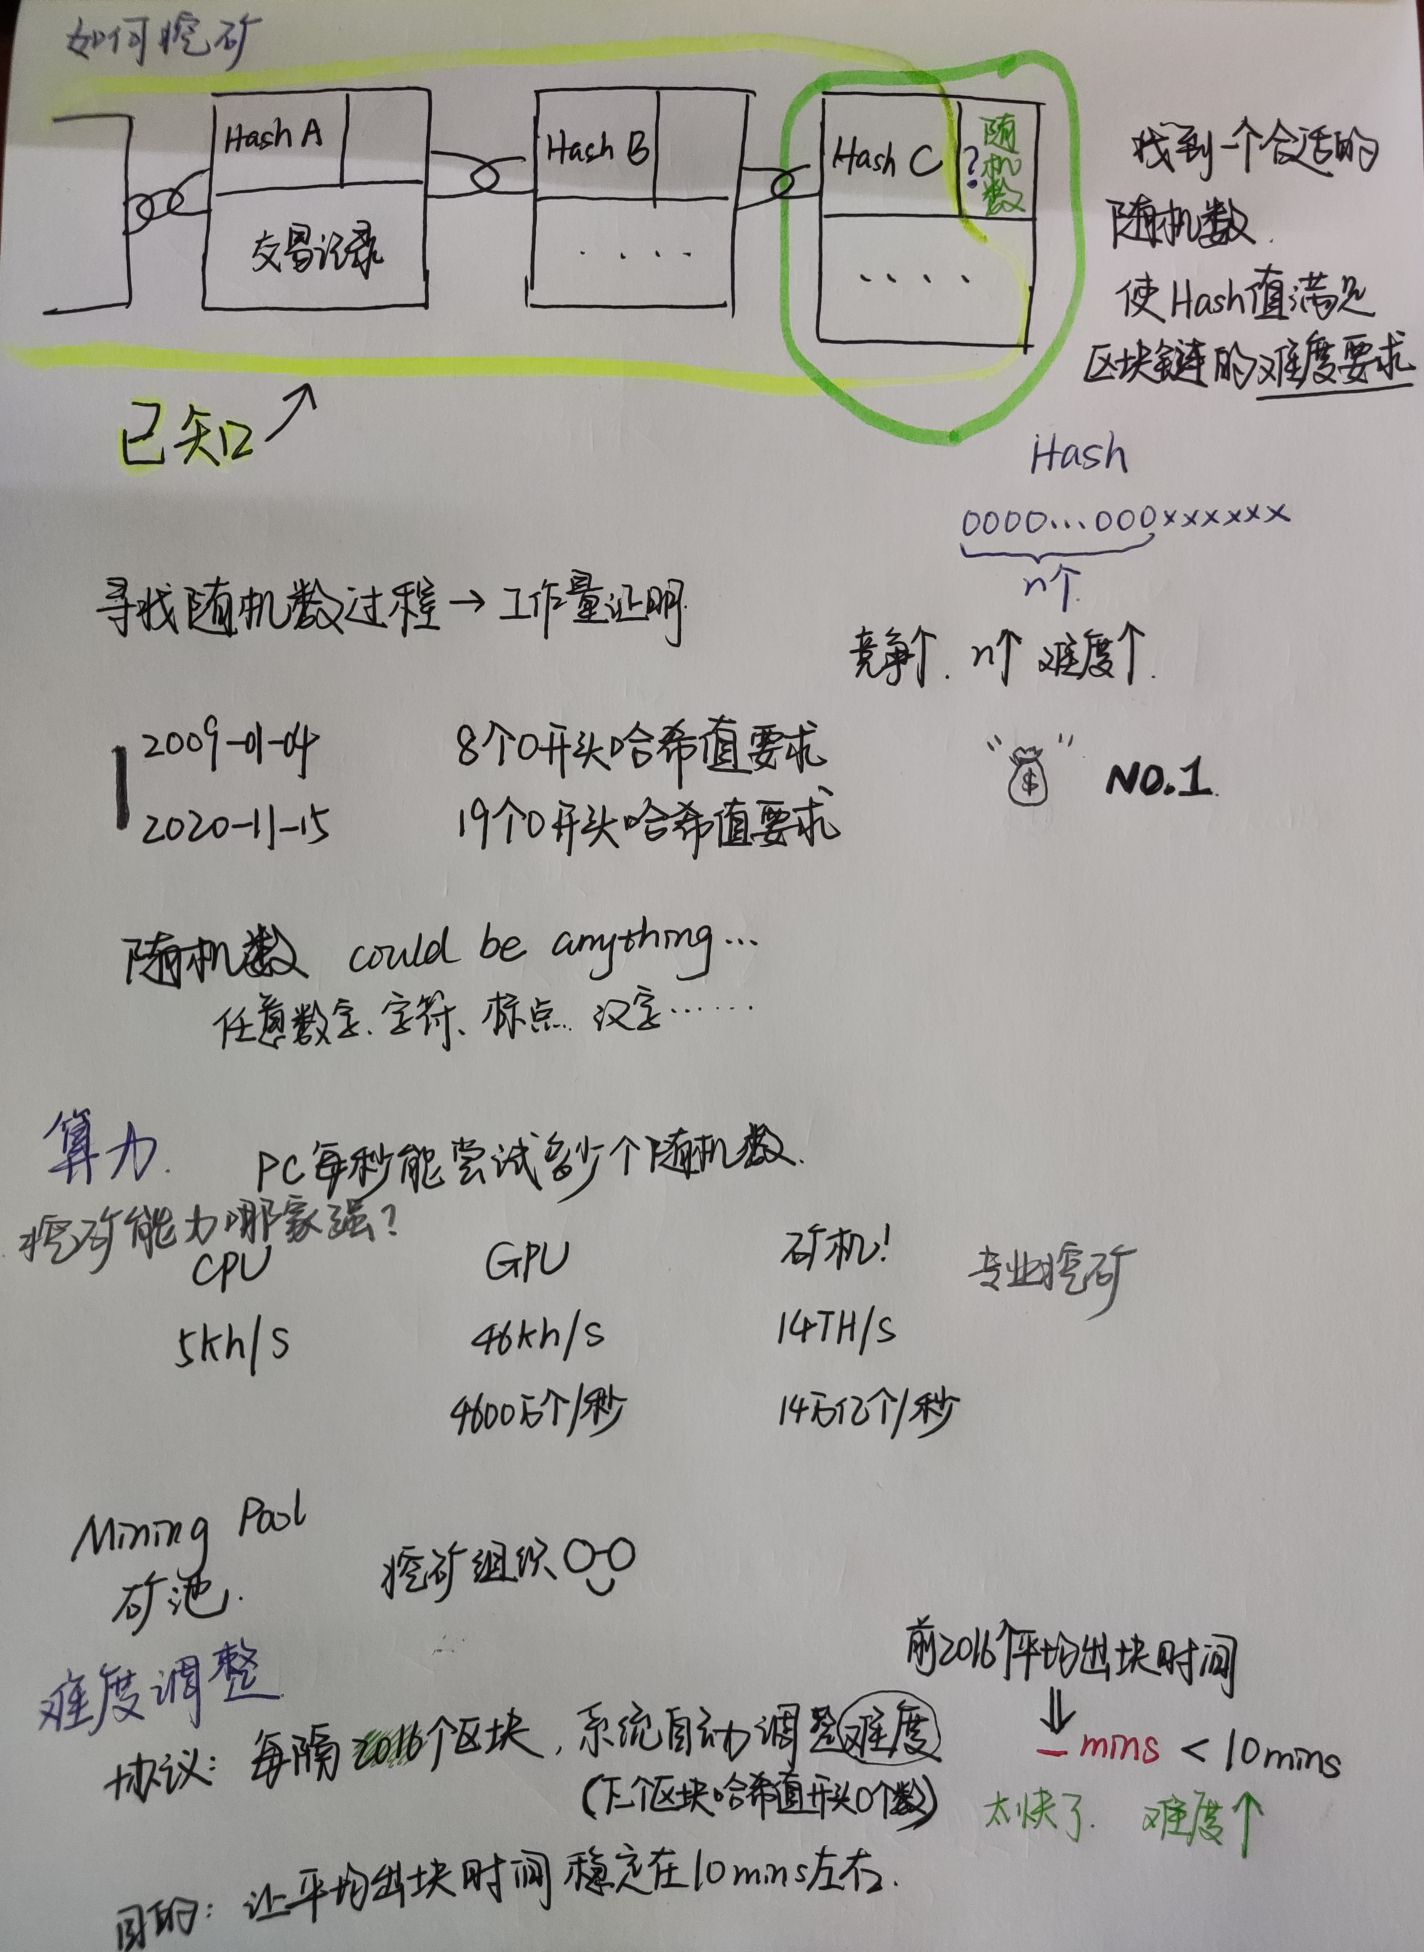 如何挖矿
Hash A
交易记录
Hash B
. . . .
Hash C
?
随机数
. . . .
找到一个合适的
随机数.
使Hash值满足
区块链的难度要求
已知
Hash
0000...000xxxxxx
n个
寻找随机数过程→工作量证明
竞争↑. n↑ 难度↑.
2009-01-04 8个0开头哈希值要求
2020-11-15 19个0开头哈希值要求
“$” NO.1
随机数 could be anything...
任意数字、字符、标点、汉字……
算力. PC每秒能尝试多少个随机数.
挖矿能力哪家强?
CPU GPU 矿机! 专业挖矿
5kh/s 46kh/s 14TH/s
4600万个/秒 14万亿个/秒
Mining Pool
矿池. 挖矿组织
难度调整
前2016个平均出块时间
协议: 每隔2016个区块, 系统自动调整难度
(下个区块哈希值开头0个数)
_ mins < 10mins
太快了. 难度↑
目的: 让平均出块时间稳定在10mins左右.